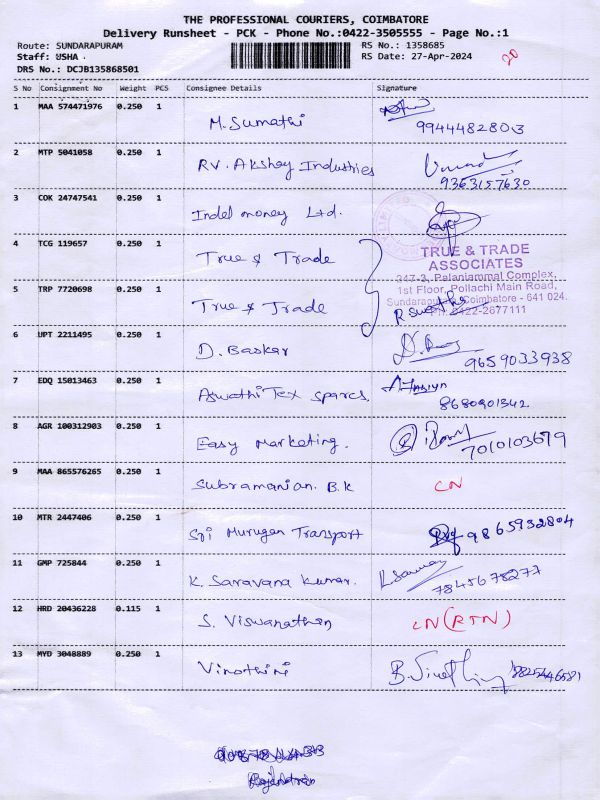 THE PROFESSIONAL COURIERS, COIMBATORE
Delivery Runsheet - PCK - Phone No.:0422-3505555 - Page No.:1
Route: SUNDARAPURAM RS No.: 1358685
Staff: USHA . RS Date: 27-Apr-2024 20
DRS No.: DCJB135868501
S No Consignment No Weight PCS Consignee Details Signature
1 MAA 574471976 0.250 1 M. Sumathi
9944482803
2 MTP 5041058 0.250 1 RV. Akshay Industries
9363157630
3 COK 24747541 0.250 1 Indel money Ltd.
4 TCG 119657 0.250 1 True & Trade
TRUE & TRADE
ASSOCIATES
247-3, Palaniammal Complex,
1st Floor, Pollachi Main Road,
Sundarapuram, Coimbatore - 641 024.
Ph: 0422-2677111
5 TRP 7720698 0.250 1 True & Trade R Swathi
6 UPT 2211495 0.250 1 D. Baskar
9659033938
7 EDQ 15013463 0.250 1 Aswathi Tex spares.
8680901342
8 AGR 100312903 0.250 1 Easy Marketing.
7010103679
9 MAA 865576265 0.250 1 Subramanian. B.K CN
10 MTR 2447406 0.250 1 Sri Murugan Transport 9865932804
11 GMP 725844 0.250 1 K. Saravana Kumar.
7845678277
12 HRD 20436228 0.115 1 S. Viswanathan CN (RTN)
13 MYD 3048889 0.250 1 Vinothini
Rajendran